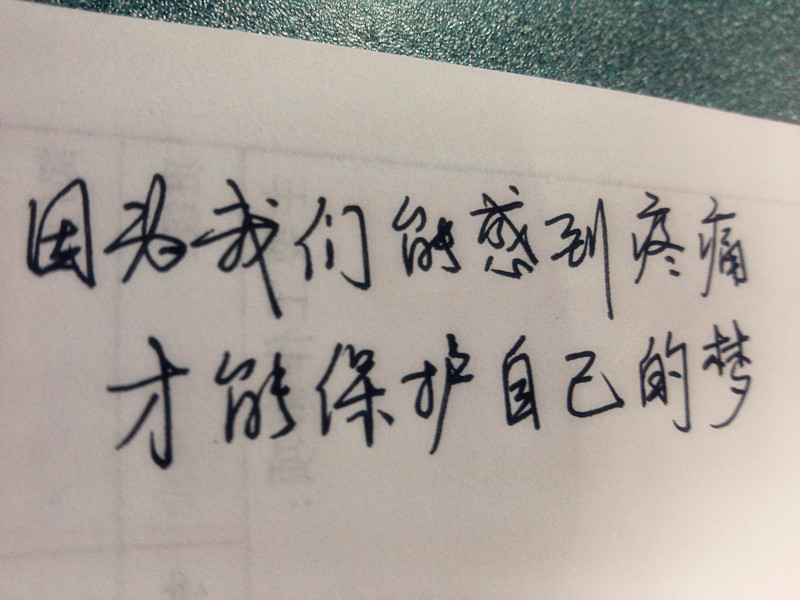 因为我们能感到疼痛
才能保护自己的梦